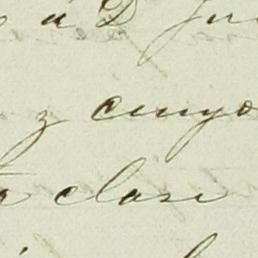 á D. Ju
z cuyo
a clase